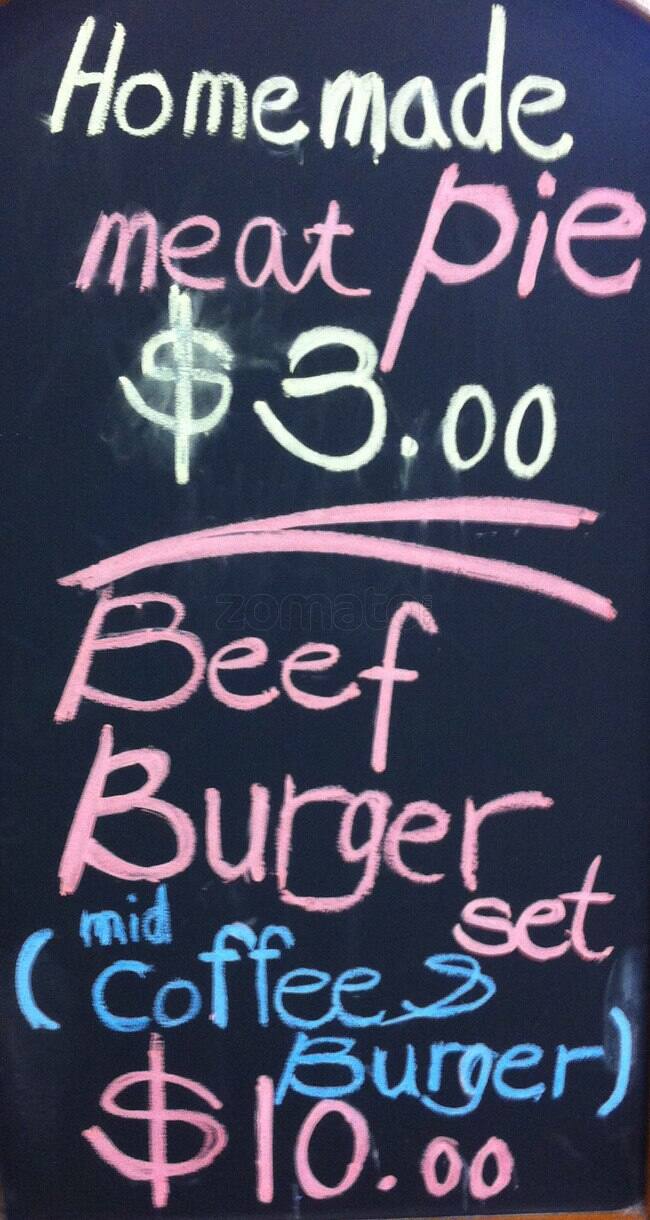 Homemade
meat pie
$3.00
zomato
Beef
Burger
set
(mid
Coffee &
Burger)
$10.00